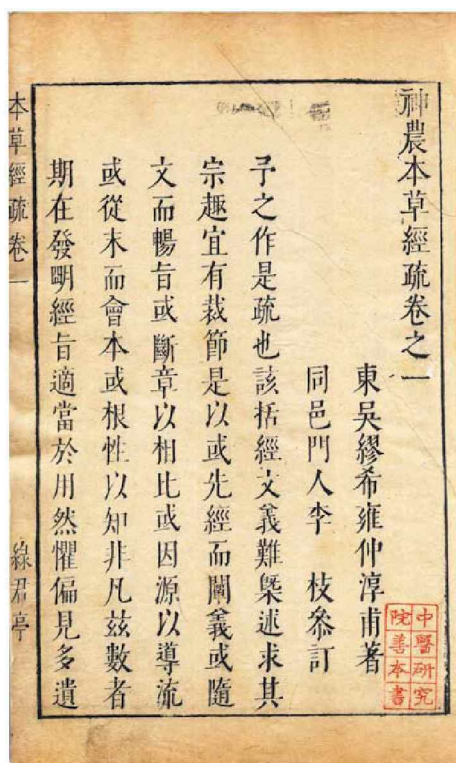 神農本草經疏卷之一
東吳繆希雍仲淳甫著
同邑門人李 枝參訂
予之作是疏也該括經文義難槩述求其
宗趣宜有裁節是以或先經而闡義或隨
文而暢旨或斷章以相比或因源以導流
或從末而會本或根性以知非凡茲數者
期在發明經旨適當於用然懼偏見多遺
本草經疏卷一
綠君亭
中醫研究
院善本書